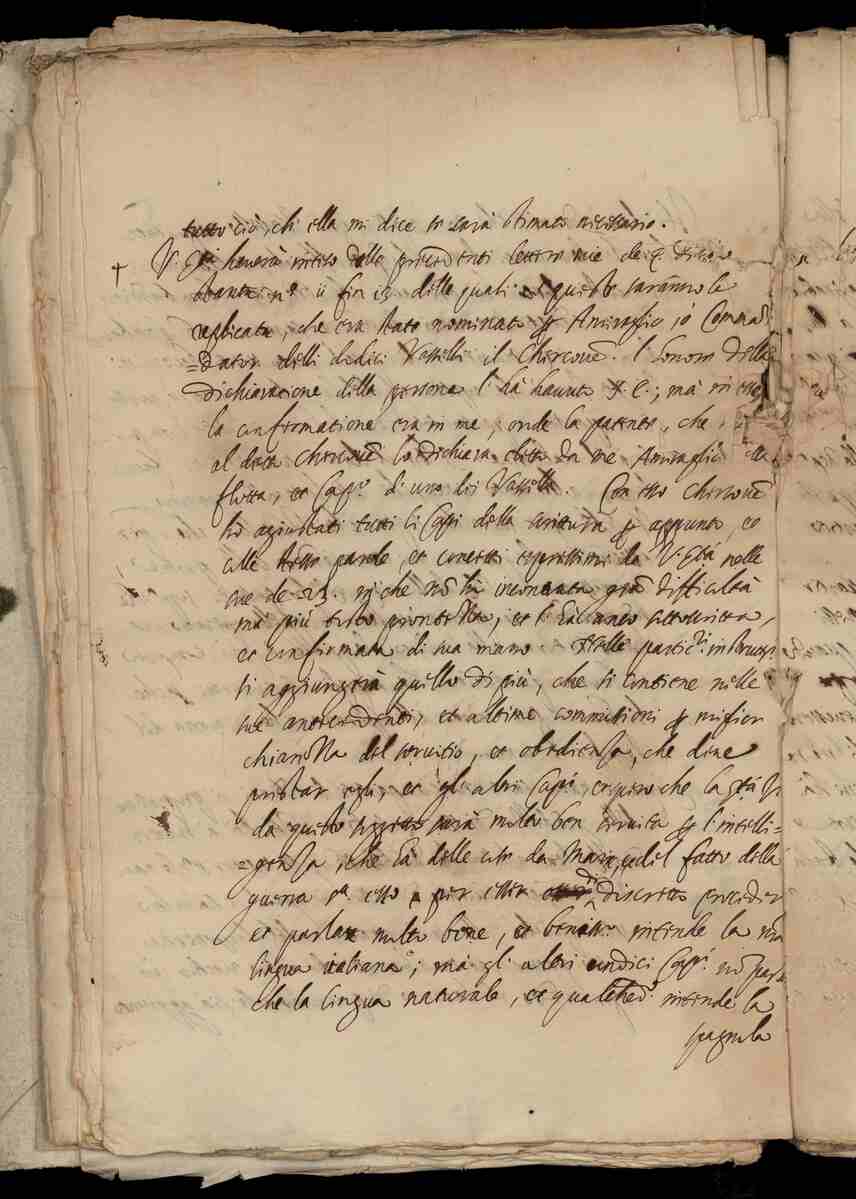 tutto ciò, ch'ella mi dice et sarà stimato necessario.
V. Stà haverà inteso dalle precedenti lettere mie de
n.º 11 fin 13 delle quali questo saranno le
replicate, che era stato nominato Amiraglio, ò Coman
=dator delli dodici Vasselli il Chercoué. l'honor della
dichiaratione della persona l'hà havuto S. E.; mà
la confirmatione era in me, onde la patente, che
al detto Chercoué lo dichiara eletto da me Amiraglio della
flotta, et Capº d'uno dei Vasselli. Con esso Chercoué
hò agiustati tutti li Capi della scrittura appunto, co
alle stesse parole, et concetti espressimi da V. Stà nelle
sue de 23. in che nõ hà incontrata grã difficultà
mà più tosto prontezza; et l'hà anco sottoscritta,
et confirmata di sua mano.
si aggiungerà quello di più, che si contiene nelle
sue antecedenti, et ultime commissioni miglior
chiarezza del servitio, et obedienza, che deve
prestar egli, et gl'altri Capi,
da questo sarà molto ben servita l'intelli=
=genza, che hà delle cose da Mare, e del fatto della
guerra per esser discretto proceder
et parlar molto bene, et intende la nrã
lingua italiana; mà gl'altri undici Capi nõ
che la lingua naturale, et qualched.º intende la
spagnola